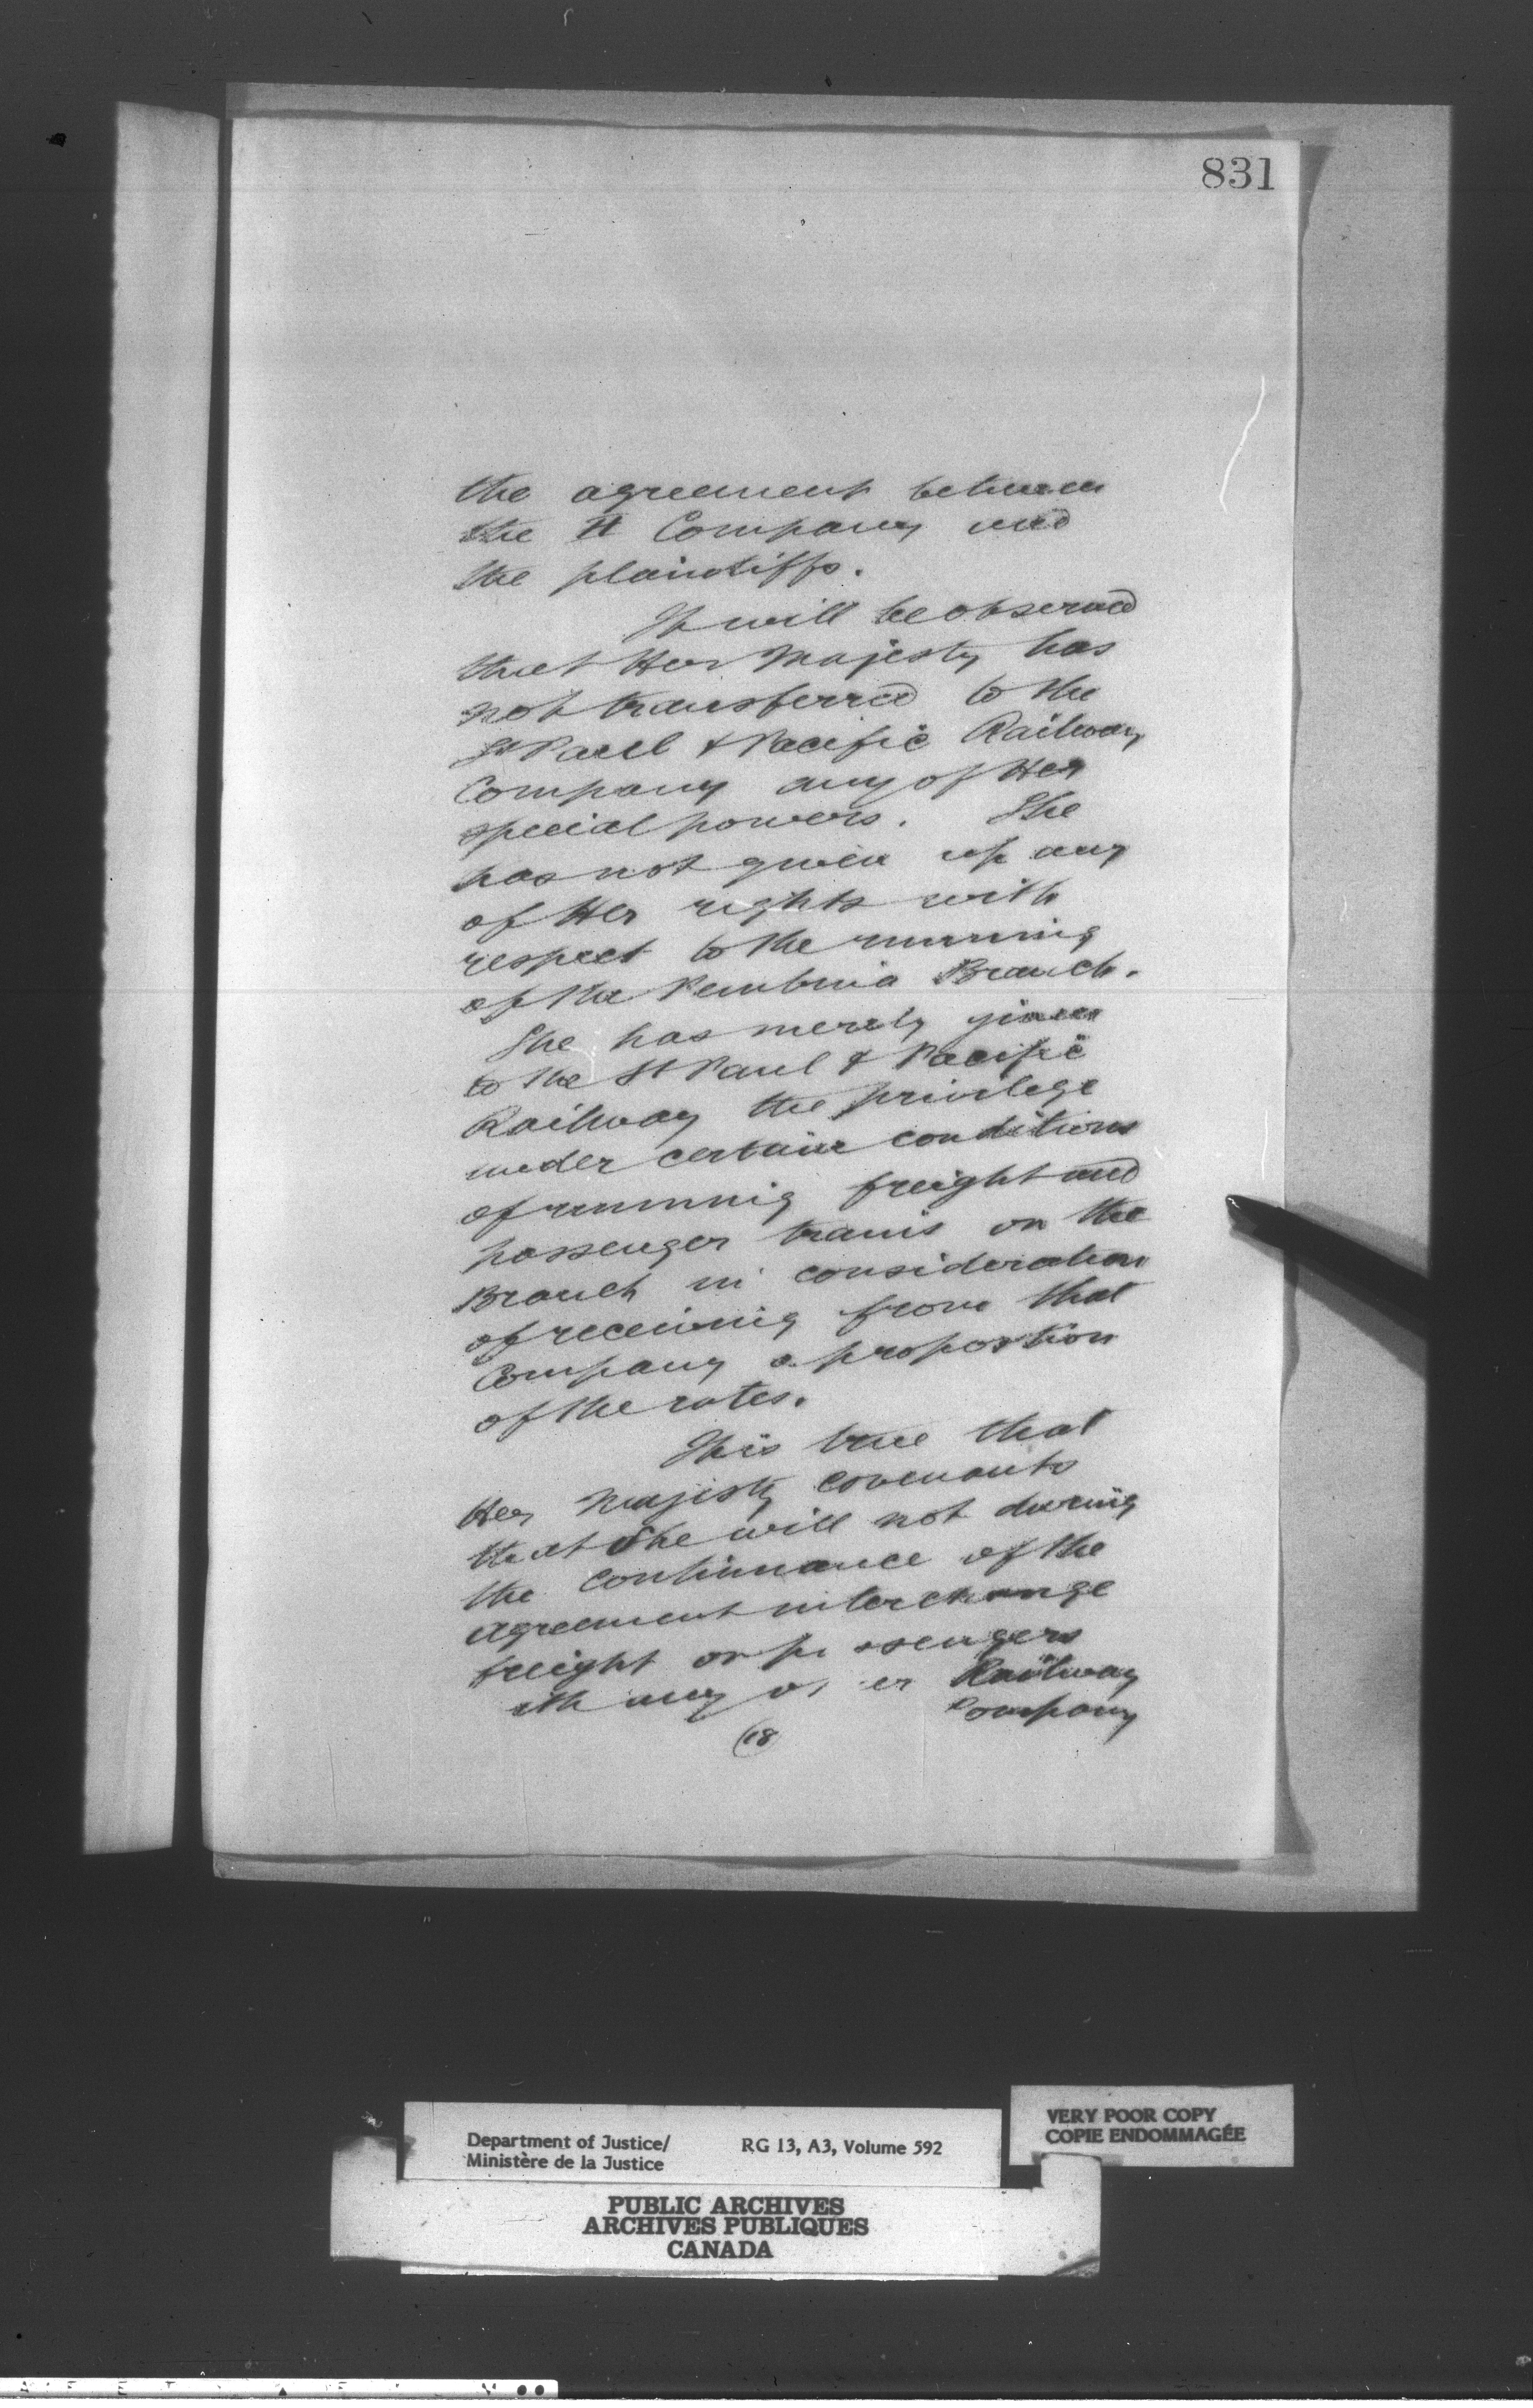 831
the agreement between
the Company and
the plaintiffs.
It will be observed
that Her Majesty has
not transferred to the
St Paul & Pacific Railway
Company any of Her
special powers. She
has not given up any
of Her rights with
respect to the running
of the Pembina Branch.
She has merely given
to the St Paul & Pacific
Railway the privilege
under certain conditions
of running freight and
passenger trains on the
Branch in consideration
of receiving from that
Company a proportion
of the rates.
It is true that
Her Majesty covenants
that She will not during
the continuance of the
agreement interchange
freight or
any Railway
Company
(18
Department of Justice/
Ministère de la Justice
RG 13, A3, Volume 592
VERY POOR COPY
COPIE ENDOMMAGÉE
PUBLIC ARCHIVES
ARCHIVES PUBLIQUES
CANADA